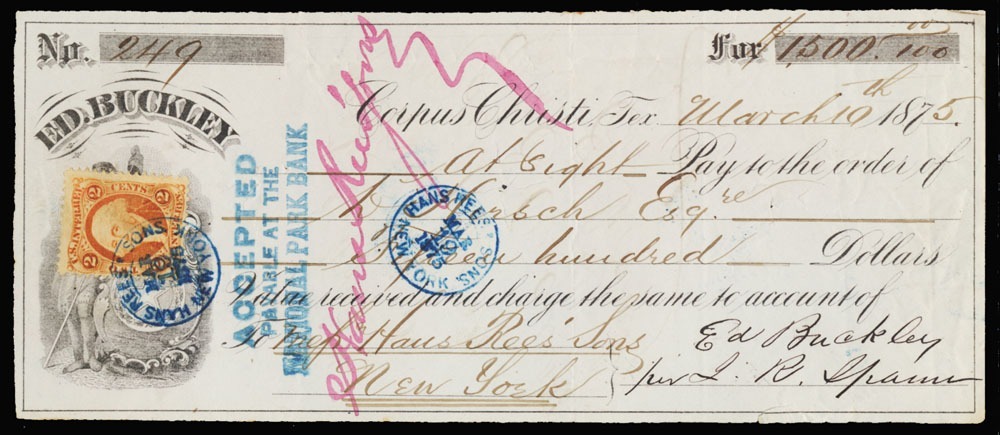 No. 249
For $1,500.00/100
ED. BUCKLEY
Corpus Christi, Tex March 10th 1875.
At Sight Pay to the order of
D. Hirsch Esqre
Fifteen hundred Dollars
Value received and charge the same to account of
To Hans Rees' Sons
New York
Ed Buckley
per J. R. Spann
ACCEPTED
PAYABLE AT THE
NATIONAL PARK BANK
Hans Rees' Sons
HANS REES' SONS
NEW YORK
MAR
U.S. INTER. REVENUE
2 CENTS 2
2
HANS REES' SONS
NEW YORK
MAR